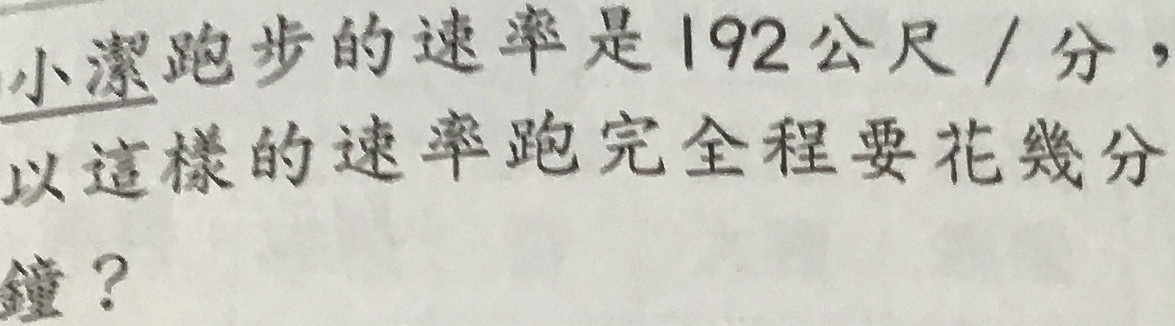 小潔跑步的速率是192公尺/分，
以這樣的速率跑完全程要花幾分
鐘？